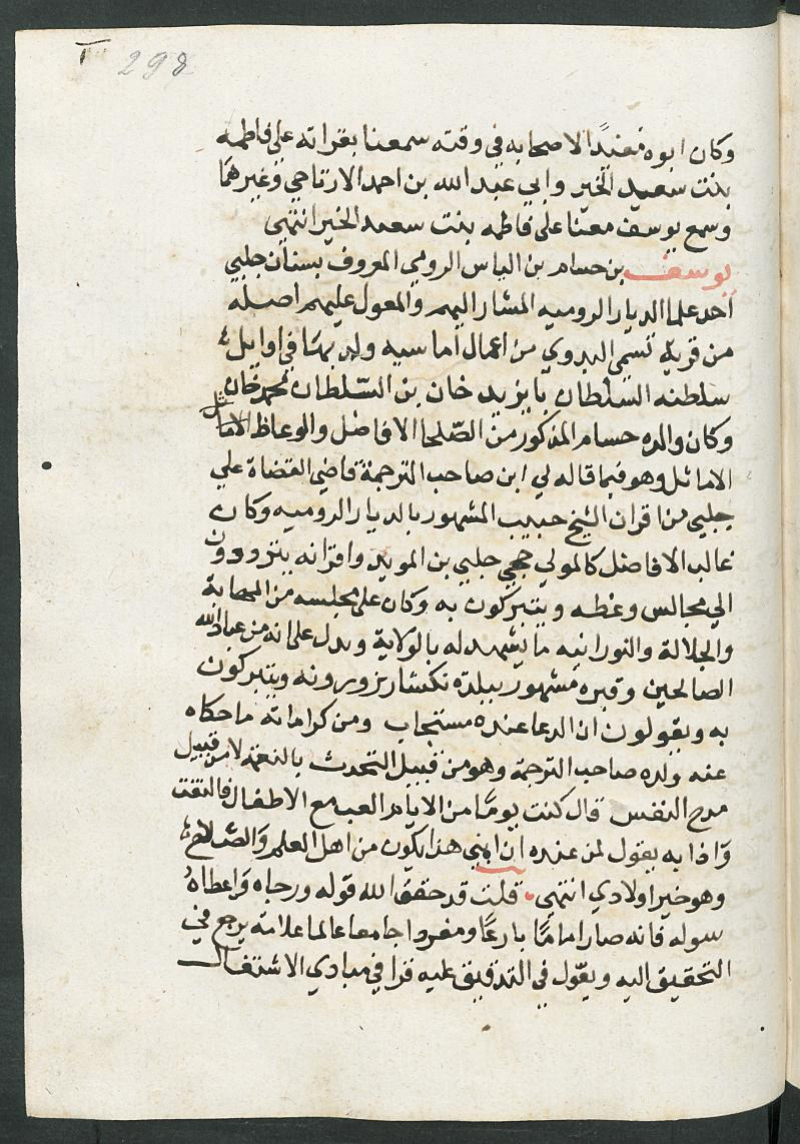 298
وكان ابوه مفيدا لاصحابه في وقته سمعنا بقراته على فاطمه
بنت سعيد الخير وابي عبد الله بن احمد الارتاحي وغيرهما
وسمع يوسف معنا على فاطمه بنت سعد الخير انتهى
يوسف بن حسام بن الياس الرومي المعروف بسنان جلبي
احد علما الديار الروميه المشار اليهم والمعول عليهم اصله
من قرية تسمى من اعمال اماسيه ولد بها في اوايل
سلطنه السلطان بايزيد خان بن السلطان محمد خان
وكان والده حسام المذكور من الصلحا الافاضل والوعاظ الاماثل
الاماثل وهو فيما قاله لي ابن صاحب الترجمة قاضي القضاة علي
جلبي من اقران الشيخ حبيب المشهور بالديار الروميه وكان
غالب الافاضل كالمولي حجي جلبي بن المويد واقرانه يترددون
الي مجالس وعظه ويتبركون به وكان على مجلسه من المهابة
والجلالة والنورانيه ما يشهد له بالولاية ويدل على انه من عباد الله
الصالحين وقبره مشهور ببلدة نكسار يزورونه ويتبركون
به ويقولون ان الدعا عنده مستجاب ومن كراماته ما حكاه
عنه ولده صاحب الترجمة وهو من قبيل التحدث بالنعمة لا من قبيل
مدح النفس قال كنت يوما من الايام العب مع الاطفال فالتفت
واذا به يقول لمن عنده ان ابني هذا يكون من اهل العلم والصلاح
وهو خير اولادي انتهى قلت قد حقق الله قوله ورجاه واعطاه
سوله فانه صار اماما بارعا ومفردا جامعا عالما علامة يرجع في
التحقيق اليه ويعول في التدقيق عليه قرا في مبادي الاشتغال